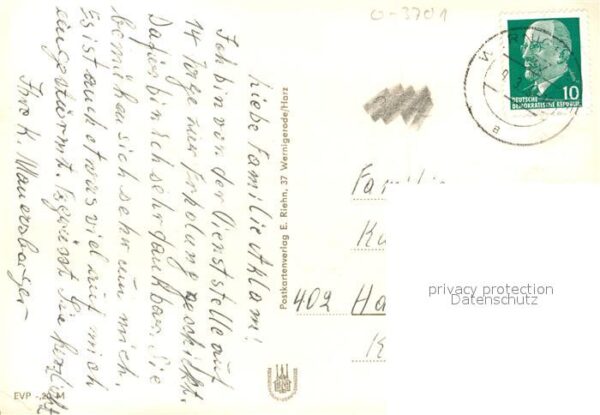 0-3701
DEUTSCHE
DEMOKRATISCHE REPUBLIK
10
Liebe Familie Aklam!
Ich bin von der Dienststelle auf
14 Tage zur Erholung geschickt.
Dafür bin ich sehr dankbar. Sie
bemühen sich sehr um mich.
Es ist auch etwas viel auf mich
eingestürmt. Es grüsst Sie herzlichst
Ihre K. Mauersberger
Postkartenverlag E. Riehn, 37 Wernigerode/Harz
402 Ha
privacy protection
Datenschutz
EVP -,20 M